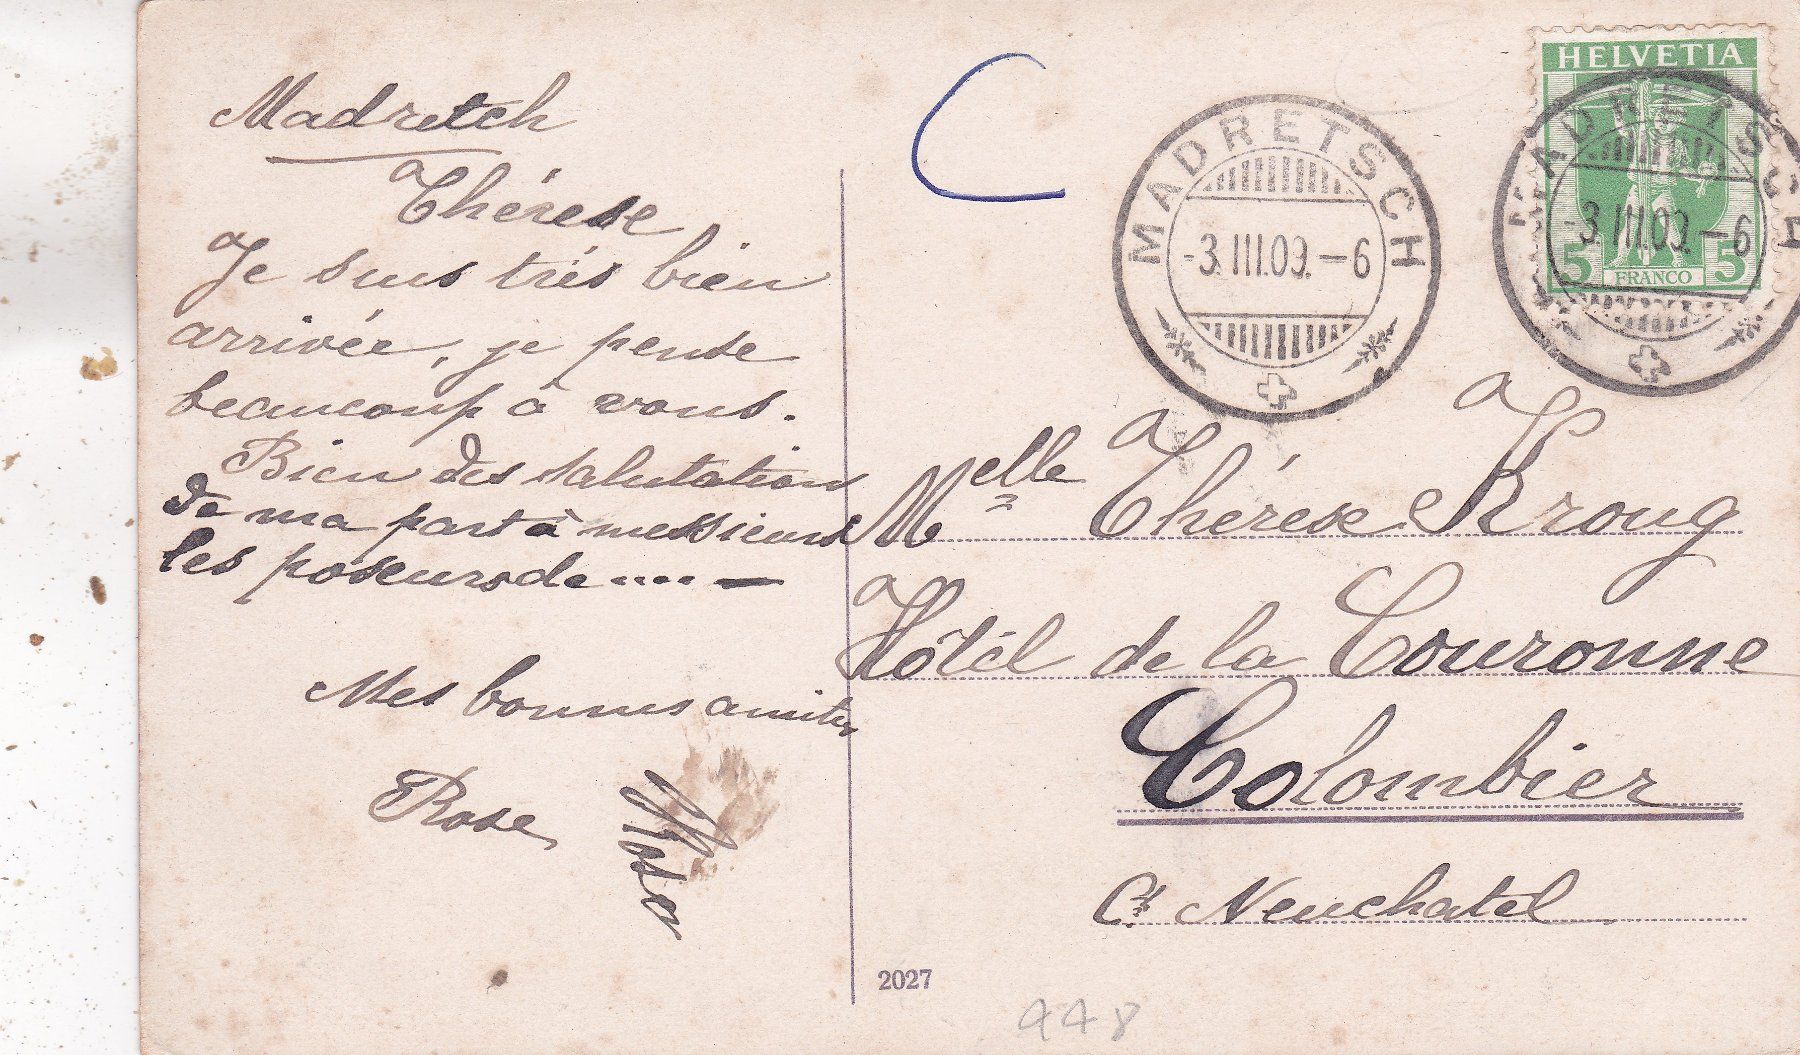 Madretch
Thérèse
Je suis très bien
arrivée, je pense
beaucoup à vous.
Bien des salutation
de ma part à messieurs
les poseurs de .... —
Mes bonnes amitiés
Rose
C
MADRETSCH
-3.III.09.—6
HELVETIA
MADRETSCH
-3.III.09.—6
5 FRANCO 5
Melle Thérèse Kroug
Hôtel de la Couronne
Colombier
Ct Neuchatel
2027
448